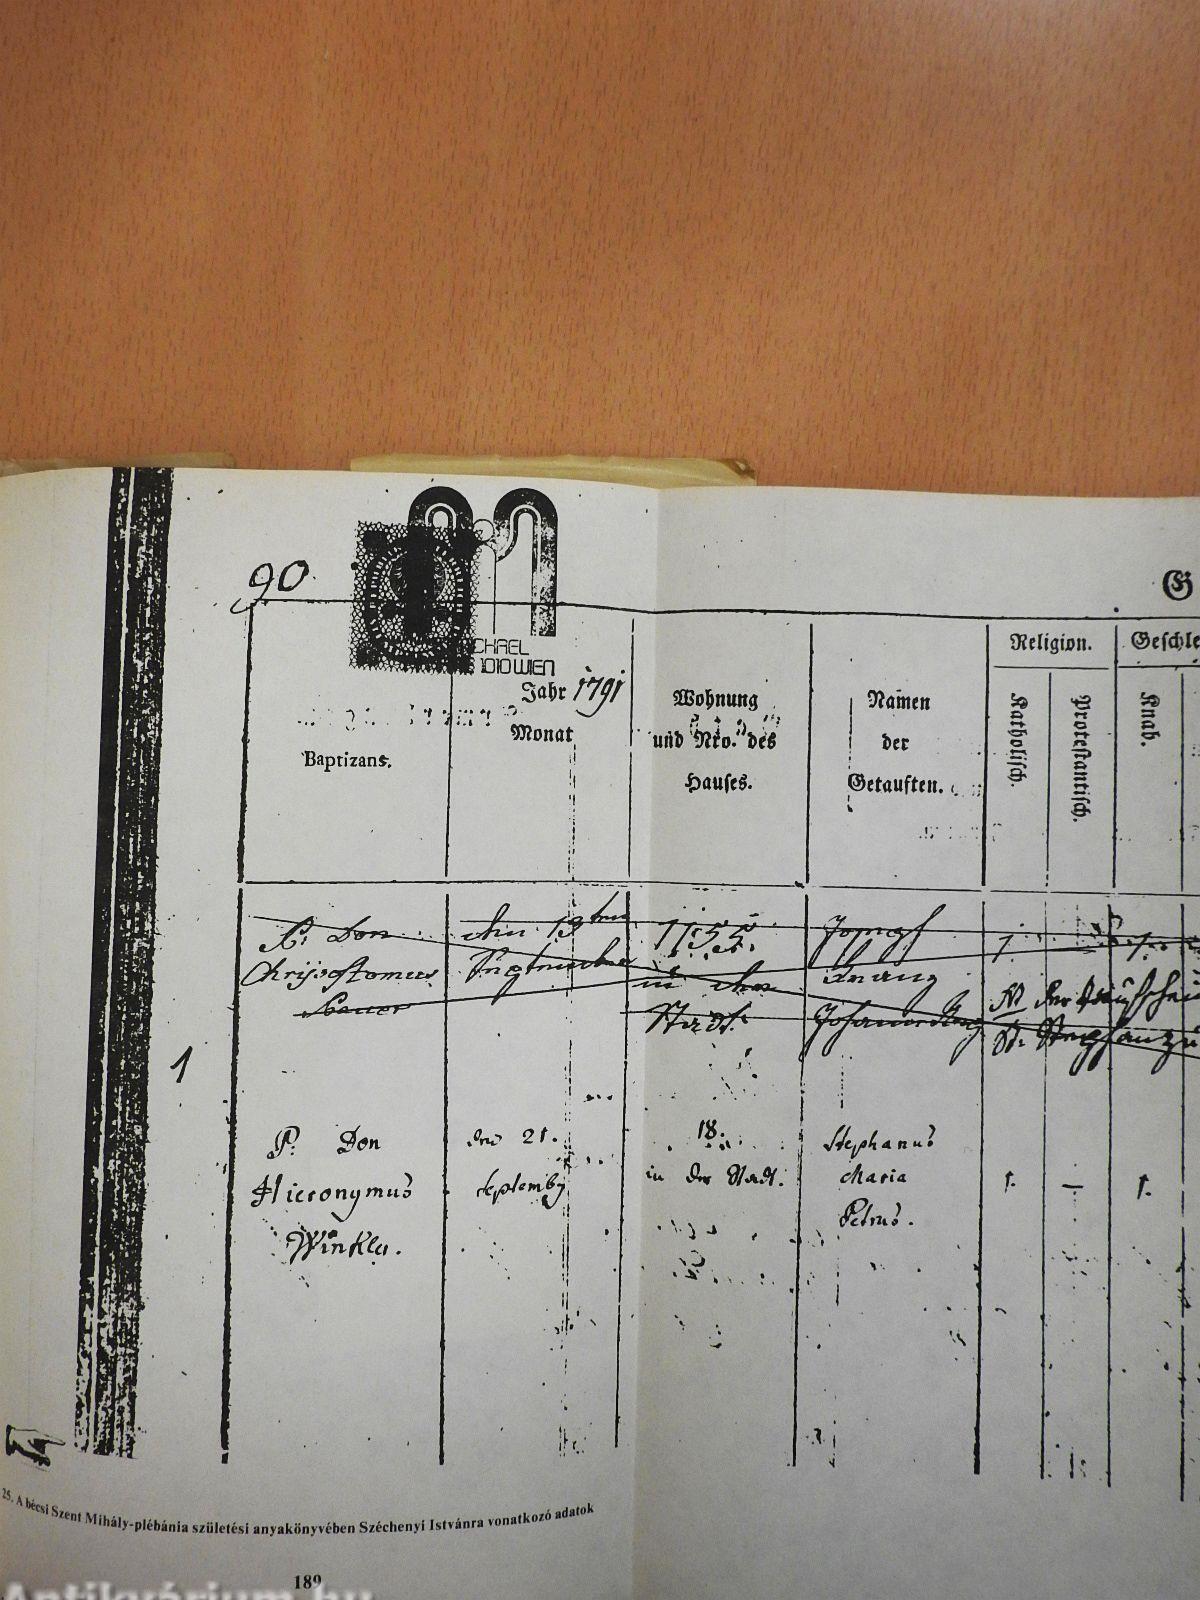 90
G
CHAEL
1010 WIEN
Jahr 1791
Monat
Baptizans.
Wohnung
und Nro. des
Hauses.
Namen
der
Getauften.
Religion.
Katholisch.
Protestantisch.
Geschle
Knab.
P. Don
Chrysostomus
den 13ten
Septembr
1155.
in der
Stadt.
Joseph
Franz
1.
1
P. Don
Hieronymus
Winkler.
den 21.
Septemb
18.
in der Stadt.
Stephanus
Maria
Petrus.
1. — 1.
25. A bécsi Szent Mihály-plébánia születési anyakönyvében Széchenyi Istvánra vonatkozó adatok
189
Antikvárium.hu